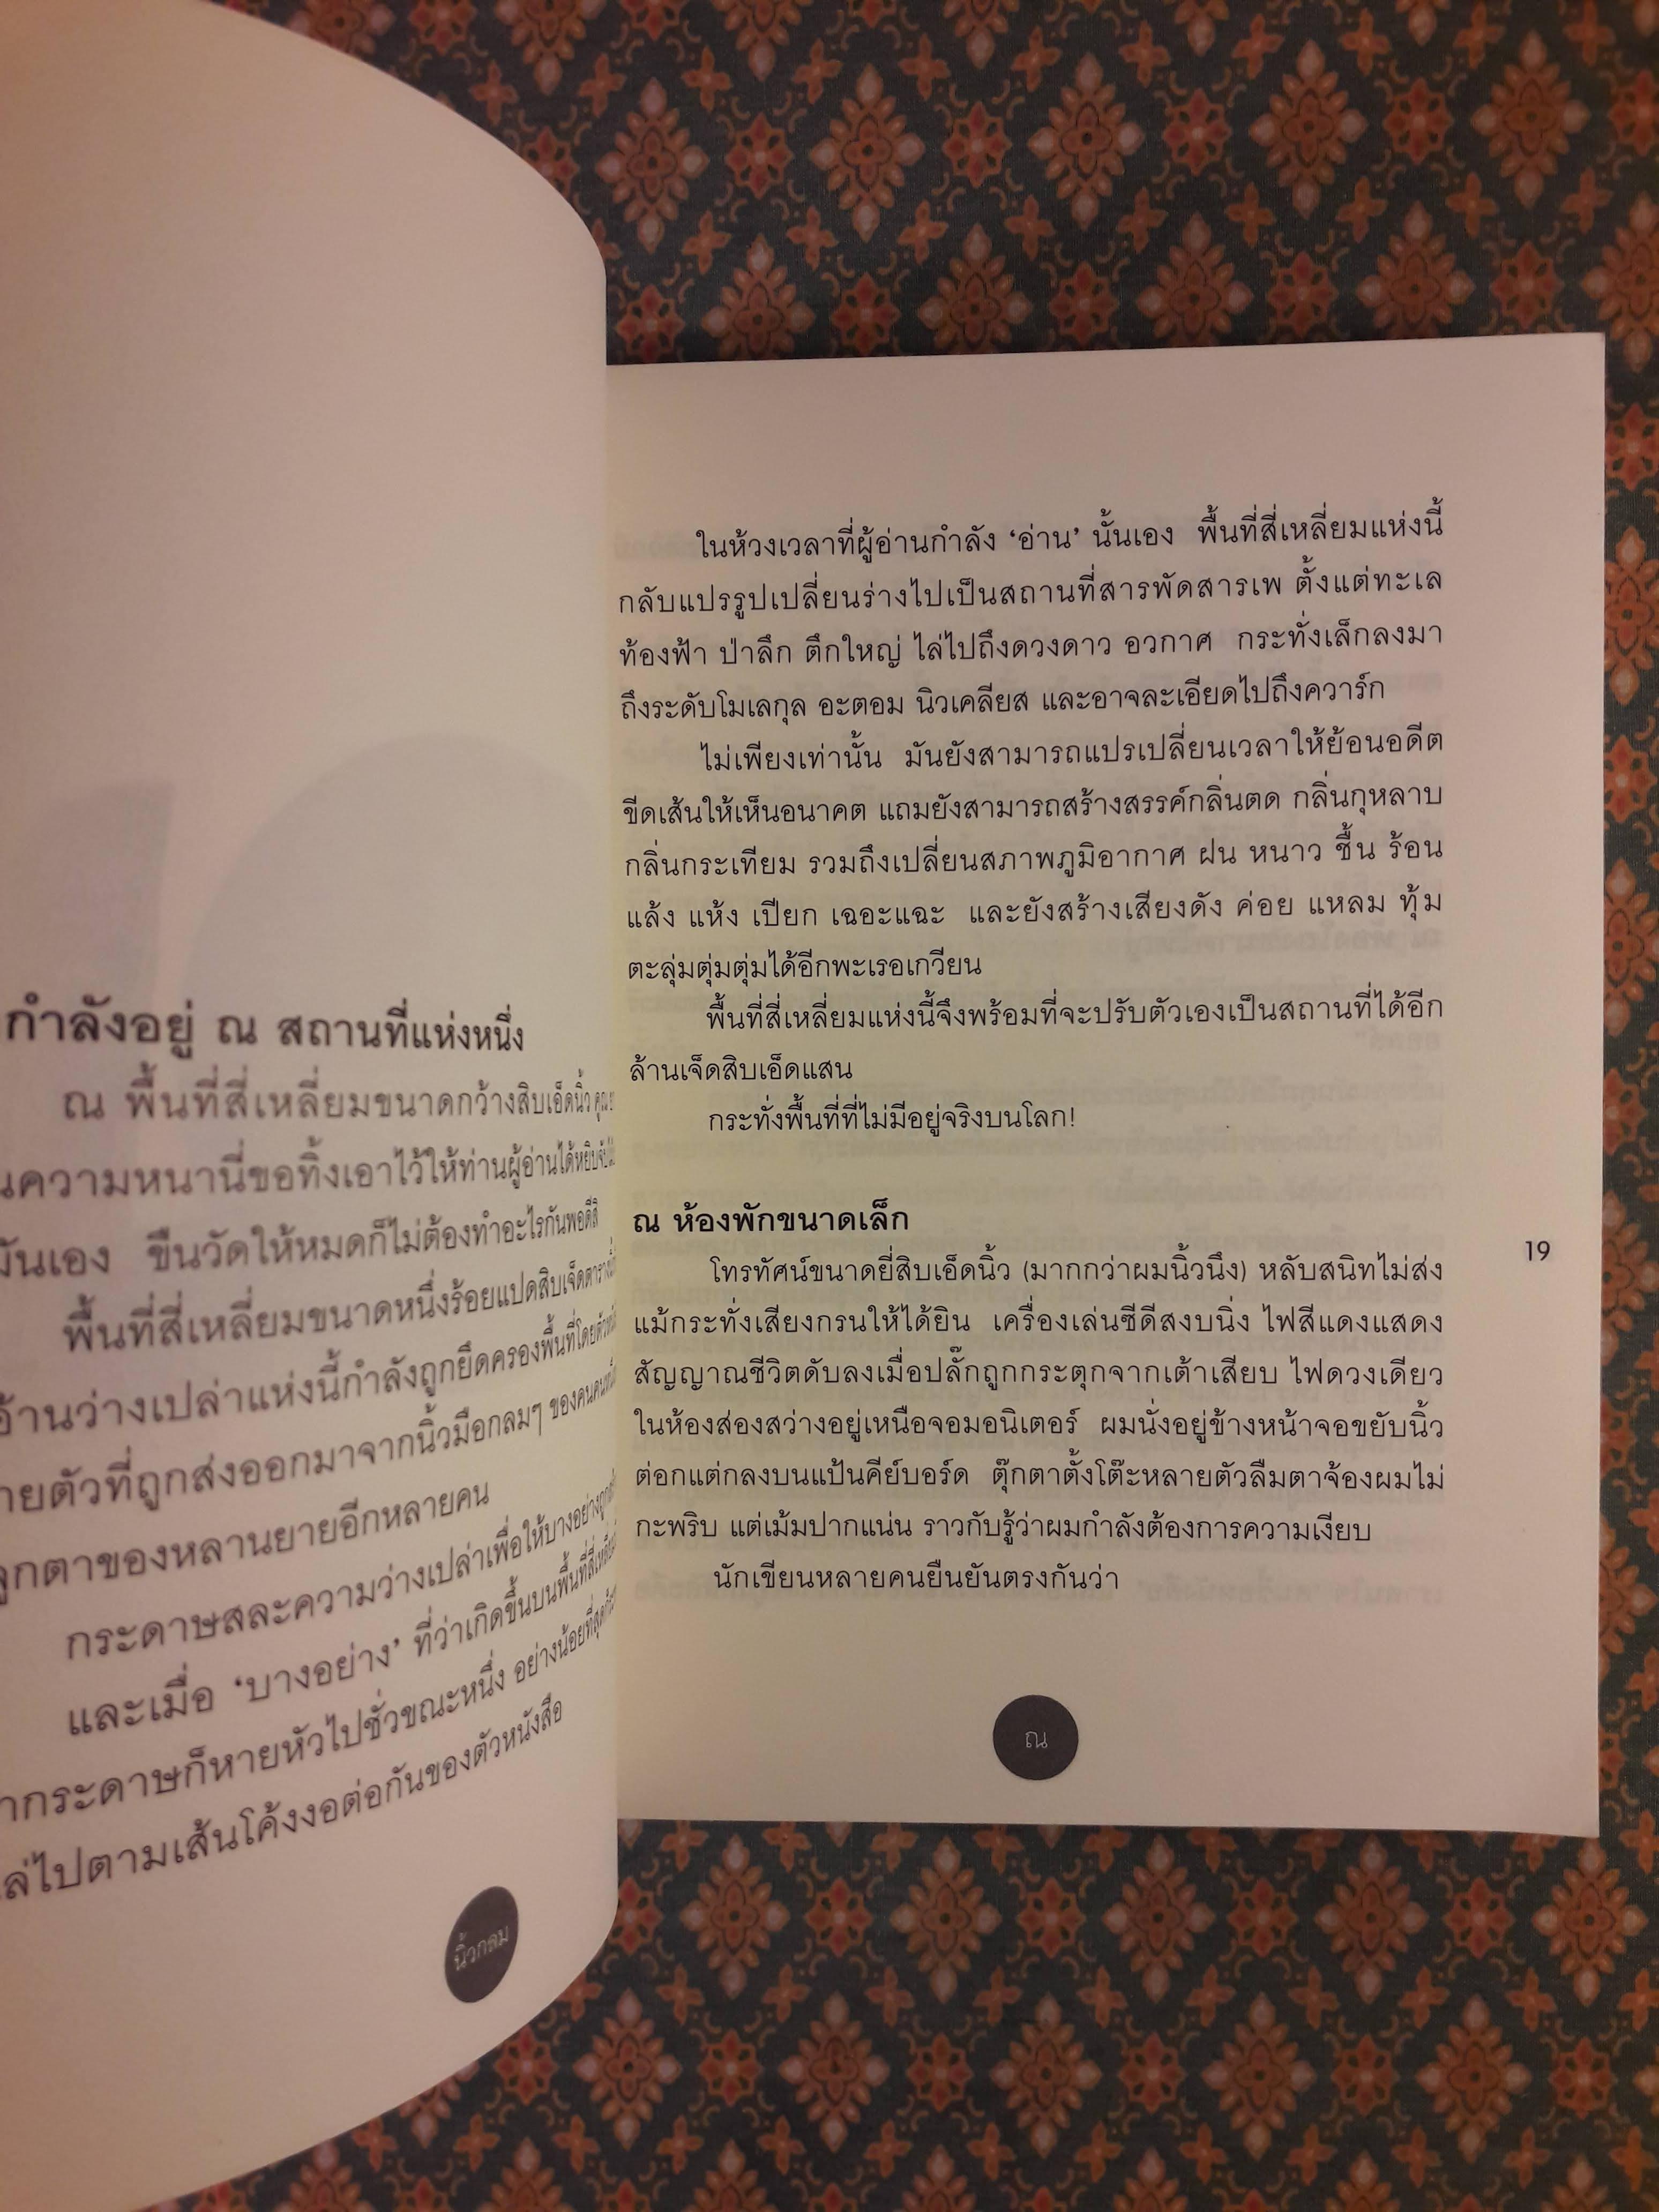 กำลังอยู่ ณ สถานที่แห่งหนึ่ง
ณ พื้นที่สี่เหลี่ยมขนาดกว้างสิบเอ็ดนิ้ว คูณ
ความหนานี่ขอทิ้งเอาไว้ให้ท่านผู้อ่านได้หยิบจับ
มันเอง ขืนวัดให้หมดก็ไม่ต้องทำอะไรกันพอดีสิ
พื้นที่สี่เหลี่ยมขนาดหนึ่งร้อยแปดสิบเจ็ดตาราง
ว่างเปล่าแห่งนี้กำลังถูกยึดครองพื้นที่โดย
ตัวที่ถูกส่งออกมาจากนิ้วมือกลมๆ ของคน
ลูกตาของหลานยายอีกหลายคน
กระดาษสละความว่างเปล่าเพื่อให้บางอย่าง
และเมื่อ ‘บางอย่าง’ ที่ว่าเกิดขึ้นบนพื้นที่
กระดาษก็หายหัวไปชั่วขณะหนึ่ง อย่างน้อยที่สุด
ไปตามเส้นโค้งงอต่อกันของตัวหนังสือ
นิ้วกลม
ในห้วงเวลาที่ผู้อ่านกำลัง ‘อ่าน’ นั้นเอง พื้นที่สี่เหลี่ยมแห่งนี้
กลับแปรรูปเปลี่ยนร่างไปเป็นสถานที่สารพัดสารเพ ตั้งแต่ทะเล
ท้องฟ้า ป่าลึก ตึกใหญ่ ไล่ไปถึงดวงดาว อวกาศ กระทั่งเล็กลงมา
ถึงระดับโมเลกุล อะตอม นิวเคลียส และอาจละเอียดไปถึงควาร์ก
ไม่เพียงเท่านั้น มันยังสามารถแปรเปลี่ยนเวลาให้ย้อนอดีต
ขีดเส้นให้เห็นอนาคต แถมยังสามารถสร้างสรรค์กลิ่นตด กลิ่นกุหลาบ
กลิ่นกระเทียม รวมถึงเปลี่ยนสภาพภูมิอากาศ ฝน หนาว ชื้น ร้อน
แล้ง แห้ง เปียก เฉอะแฉะ และยังสร้างเสียงดัง ค่อย แหลม ทุ้ม
ตะลุ่มตุ่มตุ่มได้อีกพะเรอเกวียน
พื้นที่สี่เหลี่ยมแห่งนี้จึงพร้อมที่จะปรับตัวเองเป็นสถานที่ได้อีก
ล้านเจ็ดสิบเอ็ดแสน
กระทั่งพื้นที่ที่ไม่มีอยู่จริงบนโลก!
ณ ห้องพักขนาดเล็ก
โทรทัศน์ขนาดยี่สิบเอ็ดนิ้ว (มากกว่าผมนิ้วนึง) หลับสนิทไม่ส่ง
แม้กระทั่งเสียงกรนให้ได้ยิน เครื่องเล่นซีดีสงบนิ่ง ไฟสีแดงแสดง
สัญญาณชีวิตดับลงเมื่อปลั๊กถูกกระตุกจากเต้าเสียบ ไฟดวงเดียว
ในห้องส่องสว่างอยู่เหนือจอมอนิเตอร์ ผมนั่งอยู่ข้างหน้าจอขยับนิ้ว
ต่อกแต่กลงบนแป้นคีย์บอร์ด ตุ๊กตาตั้งโต๊ะหลายตัวลืมตาจ้องผมไม่
กะพริบ แต่เม้มปากแน่น ราวกับรู้ว่าผมกำลังต้องการความเงียบ
นักเขียนหลายคนยืนยันตรงกันว่า
19
ณ